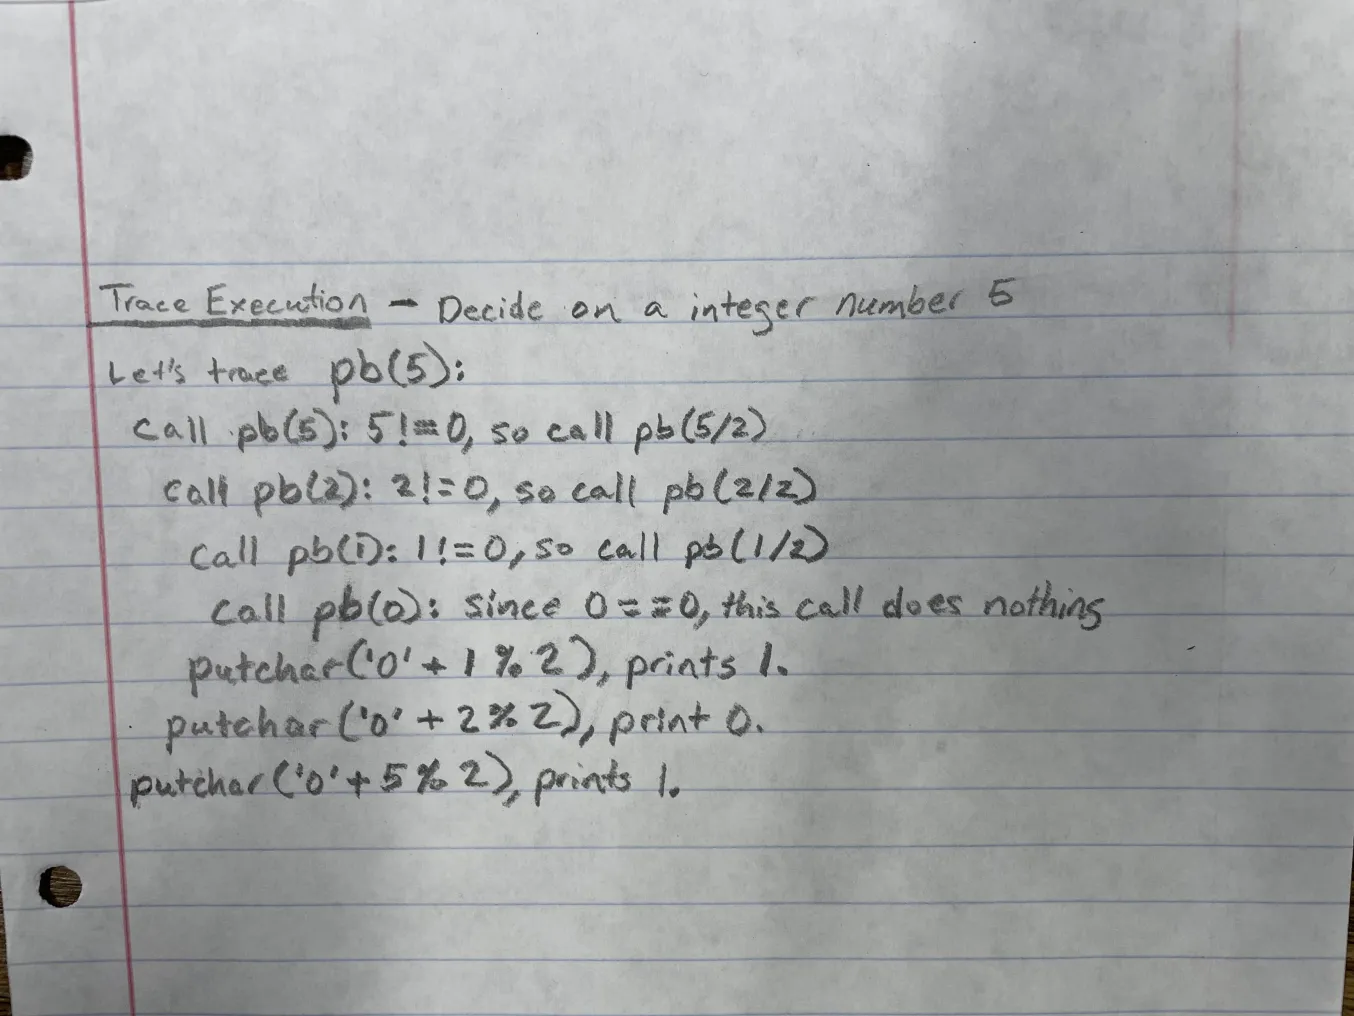 Trace Execution - Decide on a integer number 5
Let's trace pb(5):
call pb(5): 5!=0, so call pb(5/2)
call pb(2): 2!=0, so call pb(2/2)
call pb(1): 1!=0, so call pb(1/2)
call pb(0): since 0==0, this call does nothing
putchar('0' + 1 % 2), prints 1.
putchar('0' + 2 % 2), print 0.
putchar('0' + 5 % 2), prints 1.